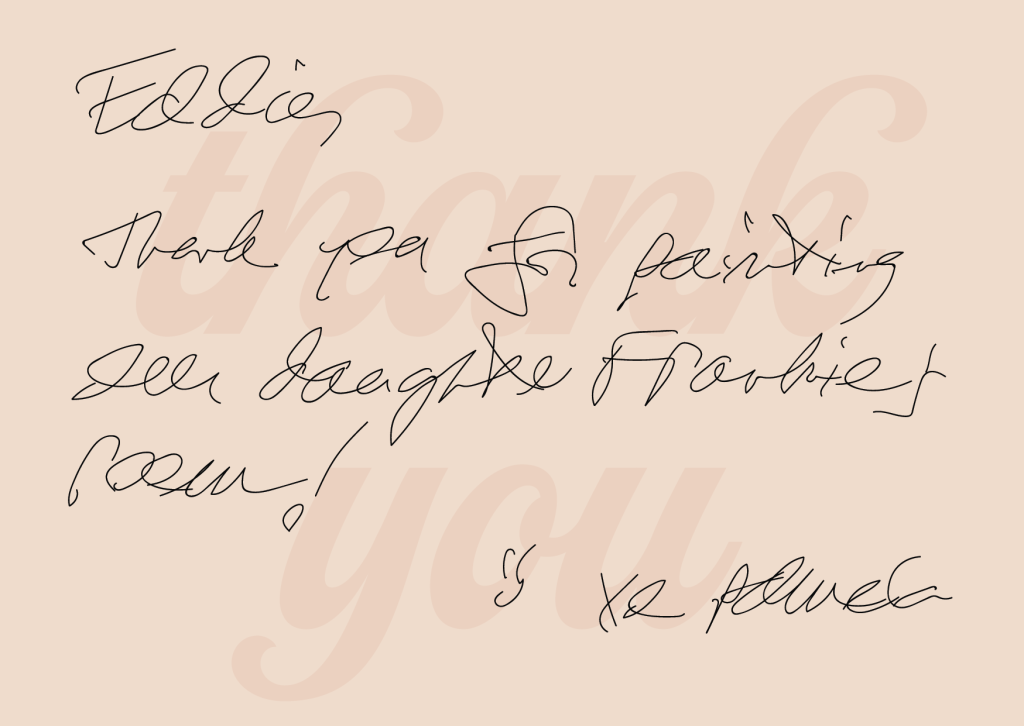 Eddie,
Thank you for painting
our daughter Frankie's
room!
:) xo Pamela
thank
you